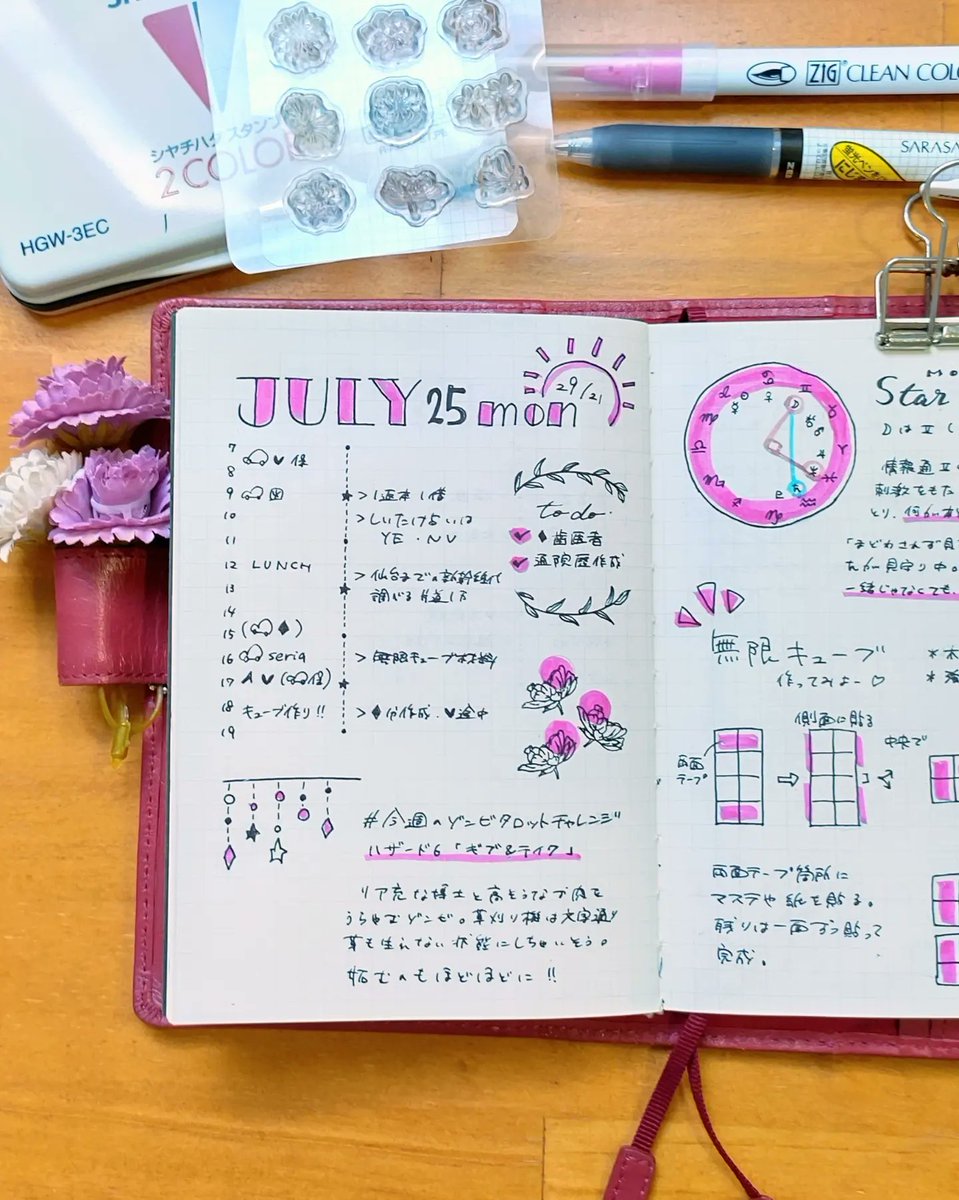 シヤチハタスタンプ
2 COLOR
HGW-3EC
ZIG CLEAN COLO
SARASA
JULY 25 mon
29/21
7
8
9
10
11
12 LUNCH
13
14
15
16 seria
17
18 キューブ作り!!
19
> しいたけ占いは
YE・NV
> 仙台までの新幹線代
調べる
> 無限キューブ材料
> ♦分作成・♥途中
to do.
♦歯医者
通院歴作成
#今週のゾンビタロットチャレンジ
ハザード6「ギブ&テイク」
リア充な博士と高そうなブ肉を
うらやむゾンビ。草刈り機は文字通り
草も生えない状態にしちゃいそう。
妬むのもほどほどに!!
Star
情報通
刺激をもた
とり、何か
一緒じゃなくても、
無限キューブ
作ってみよー♡
側面に貼る
両面
テープ
中央で
両面テープ箇所に
マステや紙を貼る。
残りは一面ずつ貼って
完成。